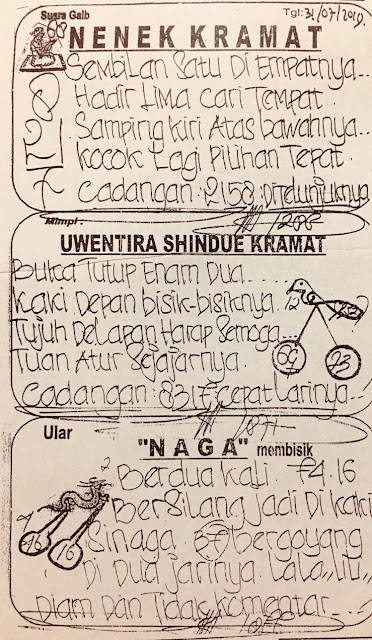 Suara Gaib
Tgl: 31/07/2019.
NENEK KRAMAT
Sembilan Satu Di Empatnya...
Hadir Lima Cari Tempat.
Samping Kiri Atas bawahnya...
Kocok Lagi Pilihan Tepat.
Cadangan: 2158 Ditelunjuknya
Mimpi:
UWENTIRA SHINDUE KRAMAT
Buka Tutup Enam Dua.....
Kaki Depan bisik-bisiknya. 12
Tujuh Delapan Harap Semoga...
Tuan Atur Sejajarnya.
69 23
Cadangan: 8317 Cepat Larinya..!
Ular
"NAGA" membisik
2 Berdua Kali. 74.16
Bersilang Jadi Di Kaki
Sinaga. 37 bergoyang
46 16
Di Dua Jarinya. Lala,, Liu,,
Diam Dan Tidak Komentar....!